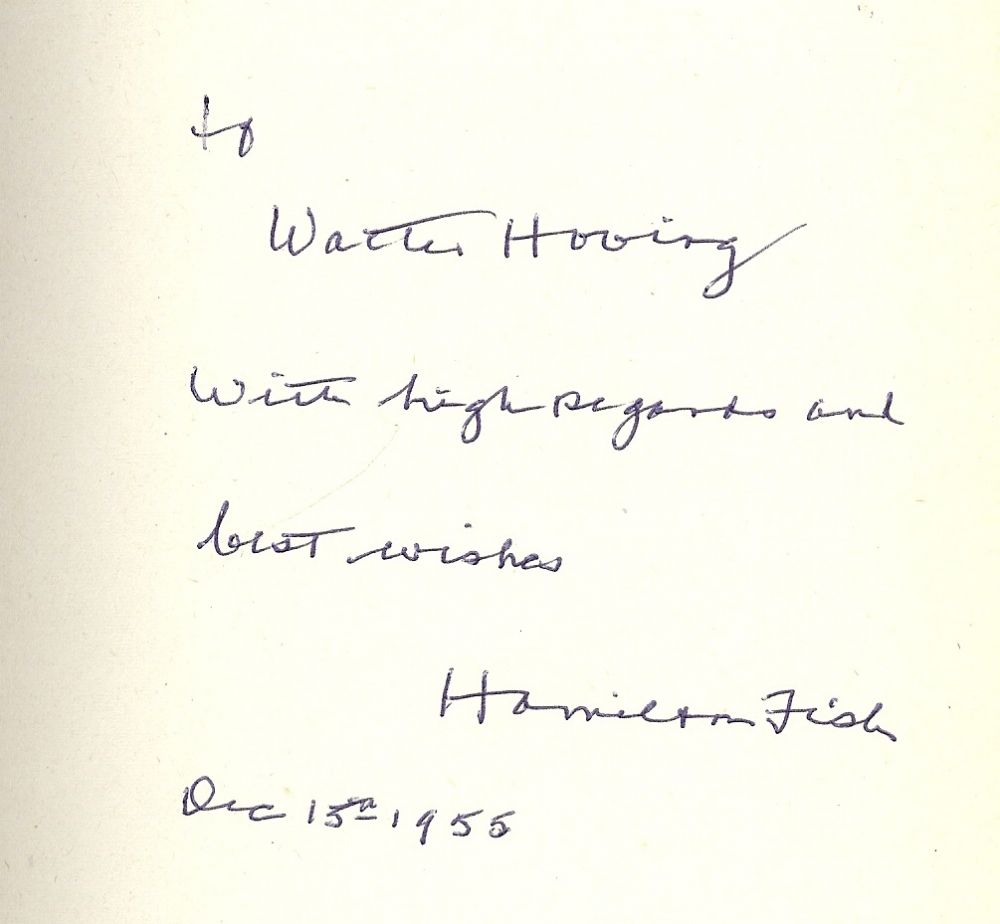 to
Walter Hoving
With high regards and
best wishes
Hamilton Fish
Dec 15th 1955